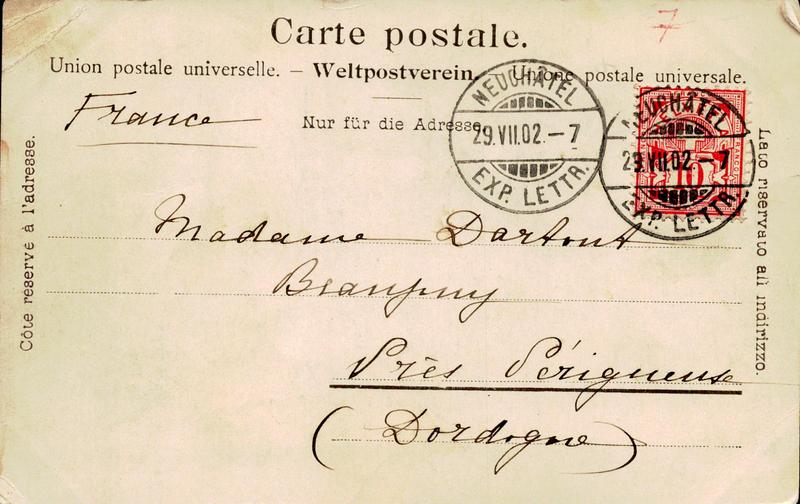 7
Carte postale.
Union postale universelle. – Weltpostverein. Unione postale universale.
France
Nur für die Adresse
NEUCHÂTEL
29.VII.02.–7
EXP. LETTR.
NEUCHÂTEL
29.VII.02.–7
EXP. LETTR.
FRANCO
10
Côté réservé à l'adresse.
Lato riservato all indirizzo.
Madame Dartout
Beaupuy
Près Périgueux
(Dordogne)